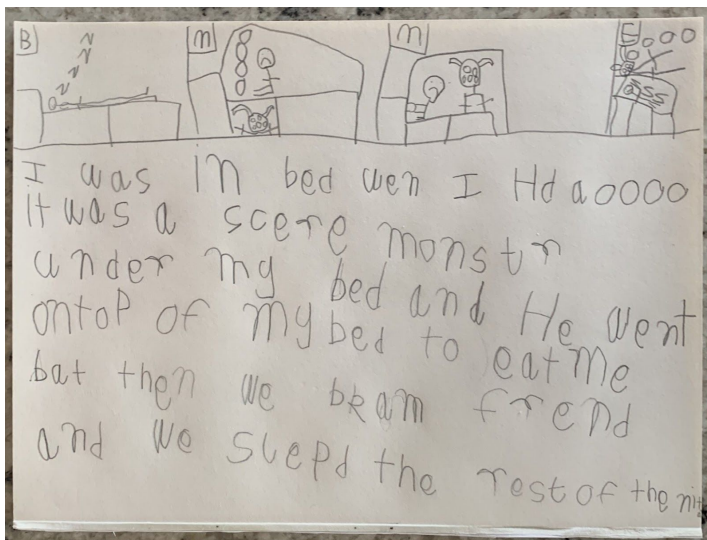 B m m E o o o
I was in bed wen I Hd a oooo
It was a scere monstr
under my bed and He went
ontop of my bed to eat me
bat then we bkam frend
and we slepd the rest of the nit